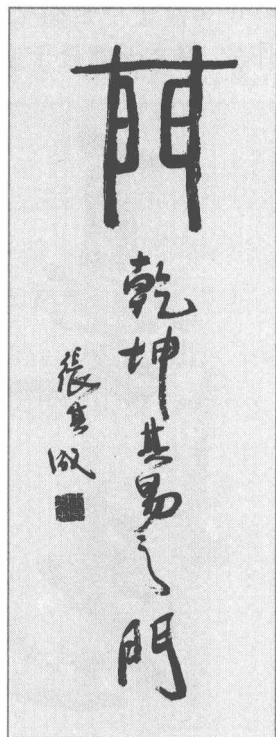 門
乾坤其易之門
張其成